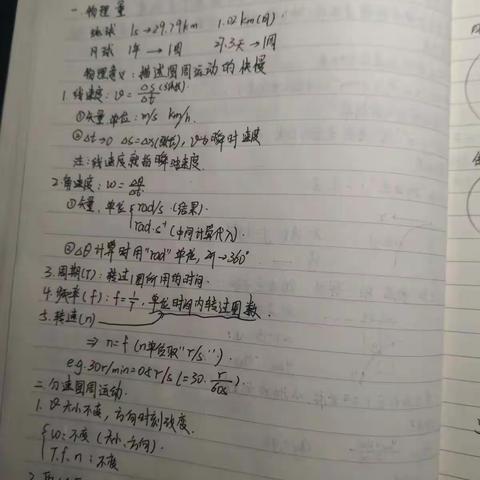 一.物理量
地球 1s→29.79km 1.02km(月)
月球 1年→1周 27.3天→1周
物理意义:描述圆周运动的快慢
1.线速度:v=Δs(弧长)/Δt
①矢量.单位:m/s km/h.
②Δt→0 Δs=Δx(弦长),v→瞬时速度
注:线速度就指瞬时速度.
2.角速度:ω=Δθ/Δt
①矢量.单位{rad/s.(结果).
rad·s⁻¹(中间计算代入).
②Δθ计算时用"rad"单位,2π→360°
3.周期(T):转过1圈所用的时间.
4.频率(f):f=1/T,单位时间内转过圈数.
5.转速(n)
⇒n=f(n单位取"r/s").
e.g.30r/min=0.5r/s(=30·r/60s)
二.匀速圆周运动.
1.v大小不变,方向时刻改变.
{ω:不变(大小.方向).
T.f.n:不变